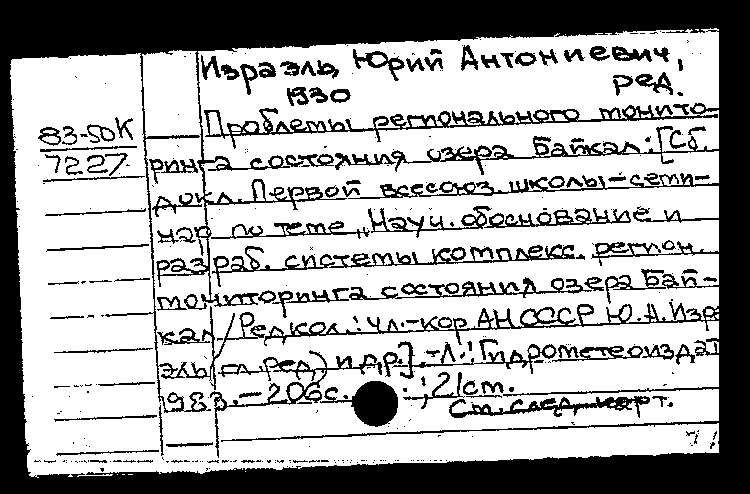 Израэль, Юрий Антониевич,
1930 ред.
83-50К
7227
Проблемы регионального монито-
ринга состояния озера Байкал: [Сб.
докл. Первой всесоюз. школы-семи-
нар по теме „Науч. обоснование и
разраб. системы комплекс. регион.
мониторинга состояния озера Бай-
кал / Редкол.: чл.-кор АН СССР Ю.А. Изра
эль (гл. ред.) и др.]. - Л.: Гидрометеоиздат
1983. - 206с. ; 21см.
См. след. карт.